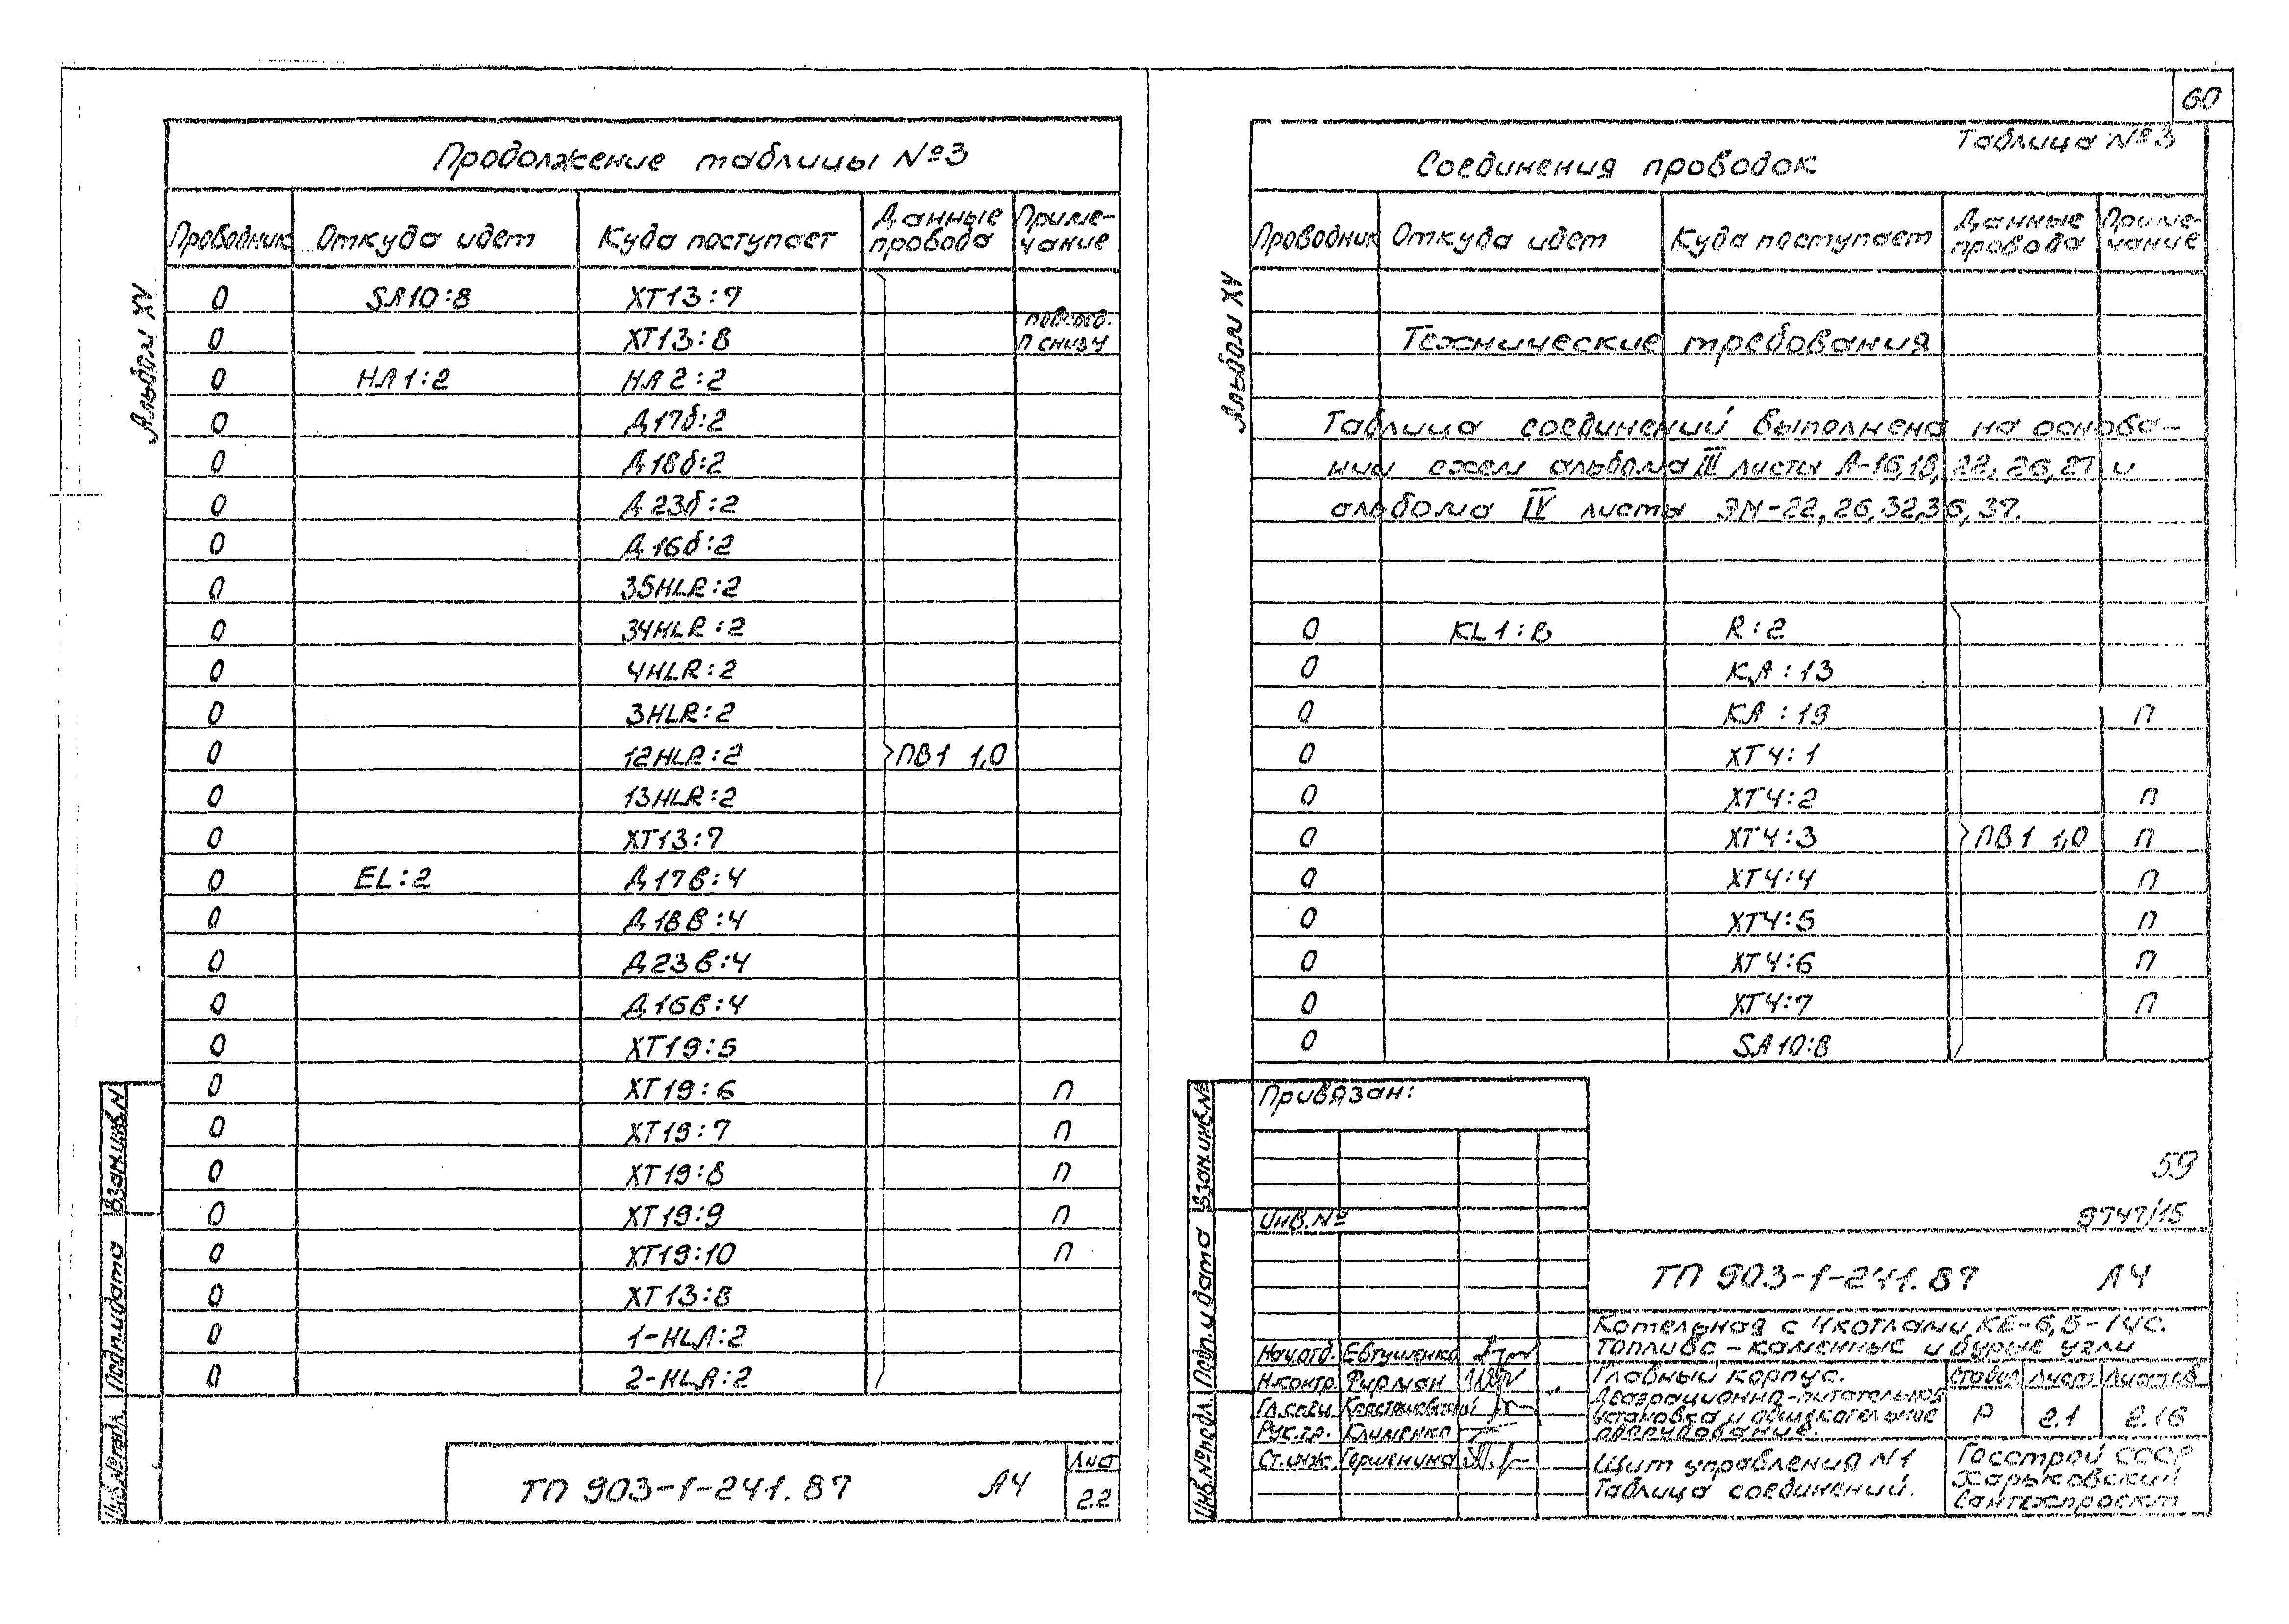 60
Альбом XV
Продолжение таблицы №3
Проводник Откуда идет Куда поступает Данные провода Примечание
0 SA10:8 XT13:7
0 XT13:8 П снизу
0 HA1:2 HA2:2
0 Д17б:2
0 Д18б:2
0 Д23б:2
0 Д16б:2
0 35HLR:2
0 34HLR:2
0 4HLR:2
0 3HLR:2
0 12HLR:2 ПВ1 1,0
0 13HLR:2
0 XT13:7
0 EL:2 Д17в:4
0 Д18в:4
0 Д23в:4
0 Д16в:4
0 XT19:5
0 XT19:6 П
0 XT19:7 П
0 XT19:8 П
0 XT19:9 П
0 XT19:10 П
0 XT13:8
0 1-HLA:2
0 2-HLA:2
Инв.№подл. Подп.и дата Взам.инв.N
ТП 903-1-241.87 А4
Лист
2.2
Альбом XV
Таблица №3
Соединения проводок
Проводник Откуда идет Куда поступает Данные провода Примечание
Технические требования
Таблица соединений выполнена на основа-
нии схем альбома III листы А-16,18,22,26,27 и
альбома IV листы ЭМ-22,26,32,36,37.
0 KL1:B R:2
0 KA:13
0 KA:19 П
0 XT4:1
0 XT4:2 П
0 XT4:3 ПВ1 1,0 П
0 XT4:4 П
0 XT4:5 П
0 XT4:6 П
0 XT4:7 П
0 SA10:8
Привязан:
Инв.№
59
9747/15
Инв.№подл. Подп.и дата Взам.инв.№
ТП 903-1-241.87 А4
Котельная с 4котлами КЕ-6,5-14с.
Топливо-каменные и бурые угли
Нач.отд. Евтушенко
Н.контр. Фирман
Гл.спец.
Рук.гр. Клименко
Ст.инж. Гершенина
Главный корпус.
Деаэрационно-питательная
установка и общекотельное
оборудование.
Стадия Лист Листов
Р 2.1 2.16
Щит управления N1
Таблица соединений.
Госстрой СССР
Харьковский
Сантехпроект